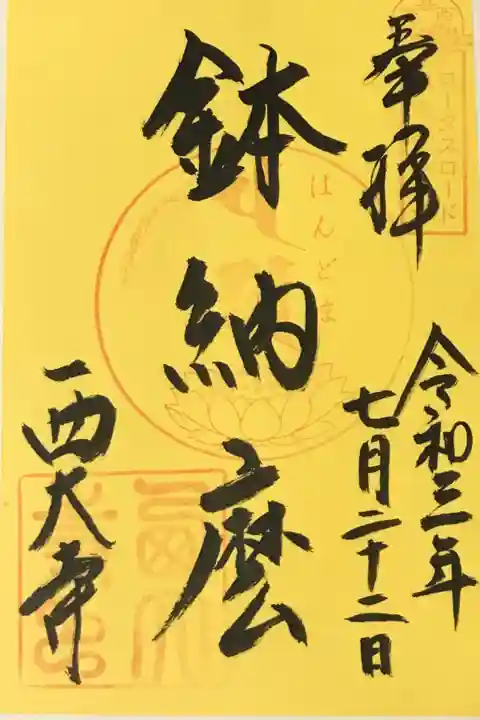 奉拝
ロータスロード
令和三年
七月二十二日
はんどま
鉢納麼
西大寺